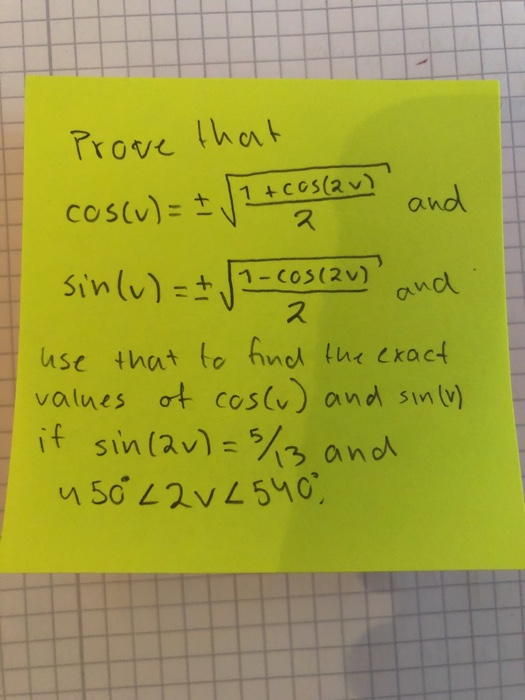 Prove that
cos(v) = ± √((1 + cos(2v))/2) and
sin(v) = ± √((1 - cos(2v))/2) and
use that to find the exact
values of cos(v) and sin(v)
if sin(2v) = 5/13 and
450° < 2v < 540°.